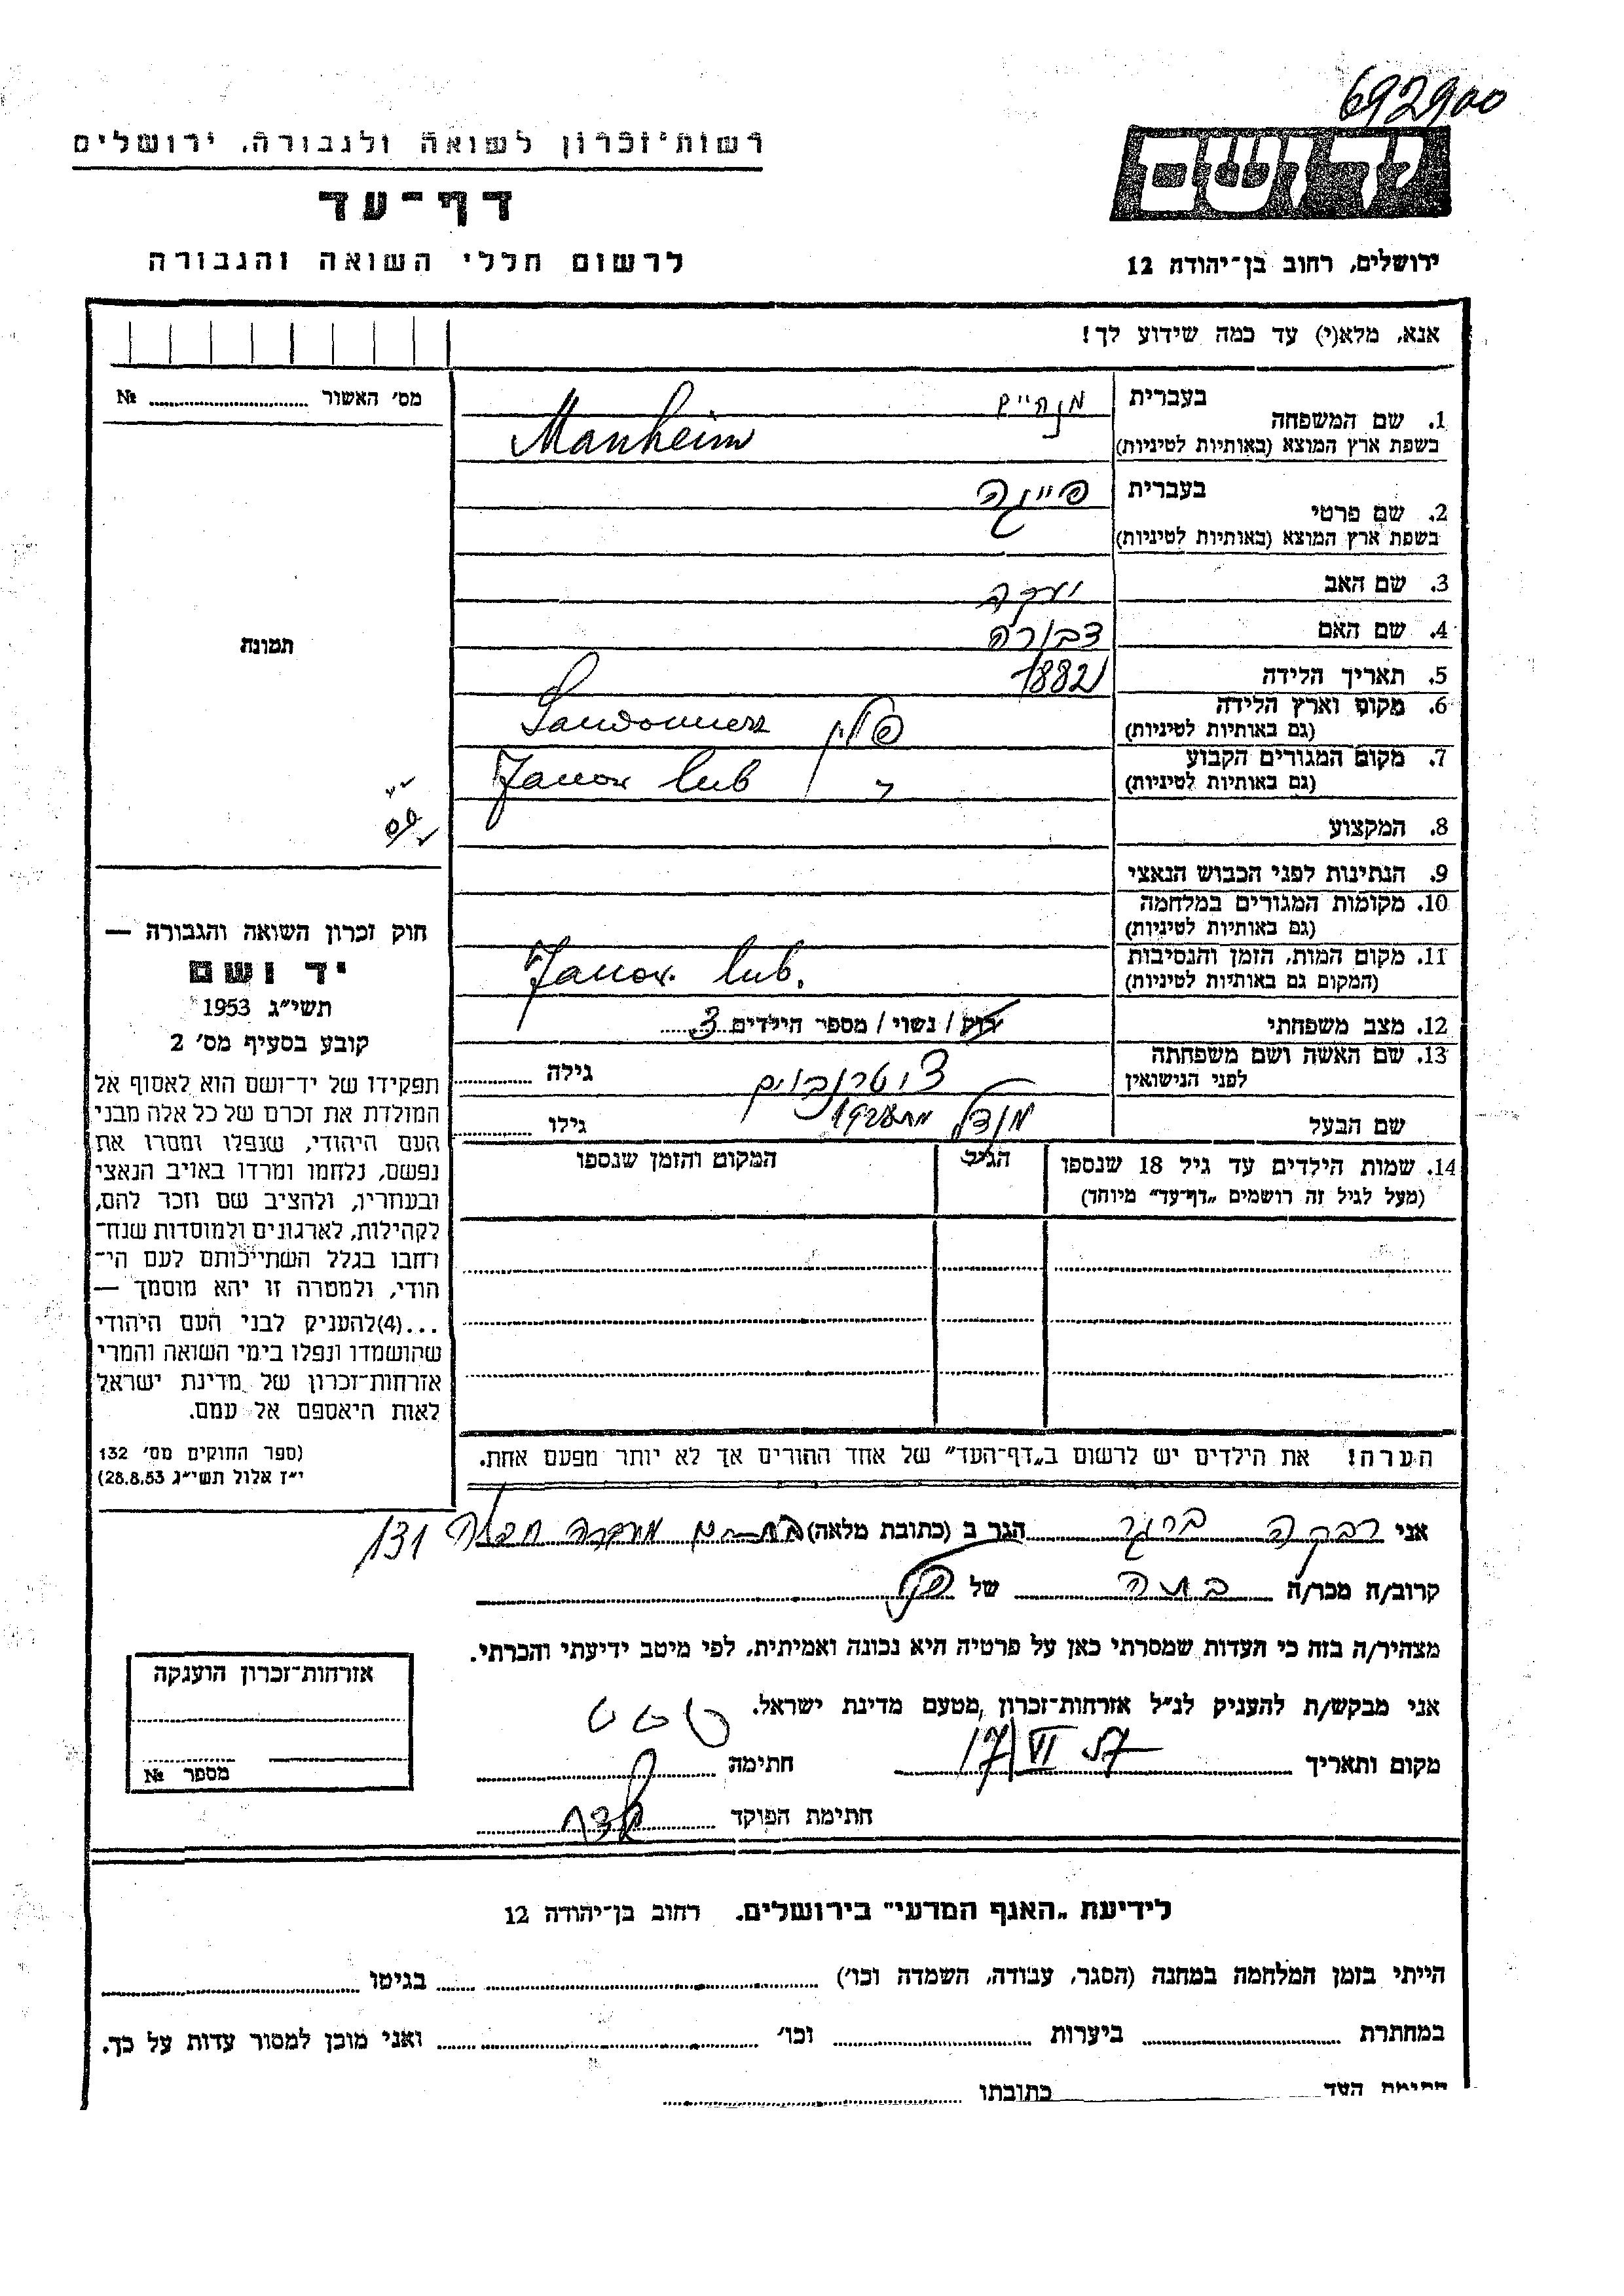 692900
רשות־זכרון לשואה ולגבורה, ירושלים
יד ושם
דף־עד
לרשום חללי השואה והגבורה
ירושלים, רחוב בן־יהודה 12
אנא, מלא(י) עד כמה שידוע לך!
מס׳ האשור № 
1. שם המשפחה
בעברית מנהיים
בשפת ארץ המוצא (באותיות לטיניות) Manheim
2. שם פרטי
בעברית פייגה
בשפת ארץ המוצא (באותיות לטיניות)
3. שם האב יעקב
4. שם האם דבורה
5. תאריך הלידה 1882
6. מקום וארץ הלידה (גם באותיות לטיניות) פולין Sandomierz
7. מקום המגורים הקבוע (גם באותיות לטיניות) " Janow lub
8. המקצוע
9. הנתינות לפני הכבוש הנאצי
10. מקומות המגורים במלחמה (גם באותיות לטיניות)
11. מקום המות, הזמן והנסיבות (המקום גם באותיות לטיניות) Janow lub.
12. מצב משפחתי רוק / נשוי / מספר הילדים 3
13. שם האשה ושם משפחתה לפני הנישואין גילה
שם הבעל מנדל גילו
14. שמות הילדים עד גיל 18 שנספו (מעל לגיל זה רושמים „דף־עד” מיוחד)
הגיל
המקום והזמן שנספו
הערה! את הילדים יש לרשום ב„דף־העד” של אחד ההורים אך לא יותר מפעם אחת.
תמונה
חוק זכרון השואה והגבורה —
יד ושם
תשי״ג 1953
קובע בסעיף מס׳ 2
תפקידו של יד־ושם הוא לאסוף אל
המולדת את זכרם של כל אלה מבני
העם היהודי, שנפלו ומסרו את
נפשם, נלחמו ומרדו באויב הנאצי
ובעוזריו, ולהציב שם וזכר להם,
לקהילות, לארגונים ולמוסדות שנח־
רחבו בגלל השתייכותם לעם הי־
הודי, ולמטרה זו יהא מוסמך —
...(4)להעניק לבני העם היהודי
שהושמדו ונפלו בימי השואה והמרי
אזרחות־זכרון של מדינת ישראל
לאות היאספם אל עמם.
(ספר החוקים מס׳ 132
י״ז אלול תשי״ג 28.8.53)
אני רבקה ברגר הגר ב (כתובת מלאה) 131
קרוב/ה מכר/ה בתה של
מצהיר/ה בזה כי העדות שמסרתי כאן על פרטיה היא נכונה ואמיתית, לפי מיטב ידיעתי והכרתי.
אני מבקש/ת להעניק לנ״ל אזרחות־זכרון מטעם מדינת ישראל.
מקום ותאריך 17/VI 57 חתימה
חתימת הפוקד
אזרחות־זכרון הוענקה
מספר №
לידיעת „האגף המדעי” בירושלים. רחוב בן־יהודה 12
הייתי בזמן המלחמה במחנה (הסגר, עבודה, השמדה וכו׳) בגיטו
במחתרת ביערות וכו׳ ואני מוכן למסור עדות על כך.
חתימת העד כתובתו